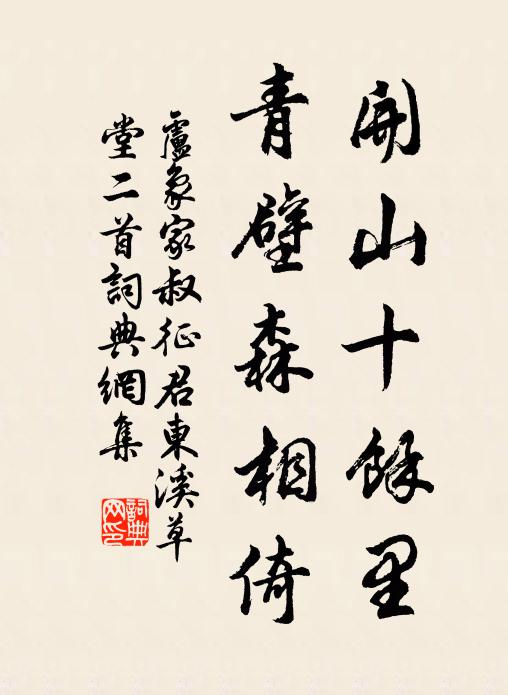 開山十餘里
青壁森相倚
盧象家叔征君東溪草
堂二首詞典網集
詞典网印